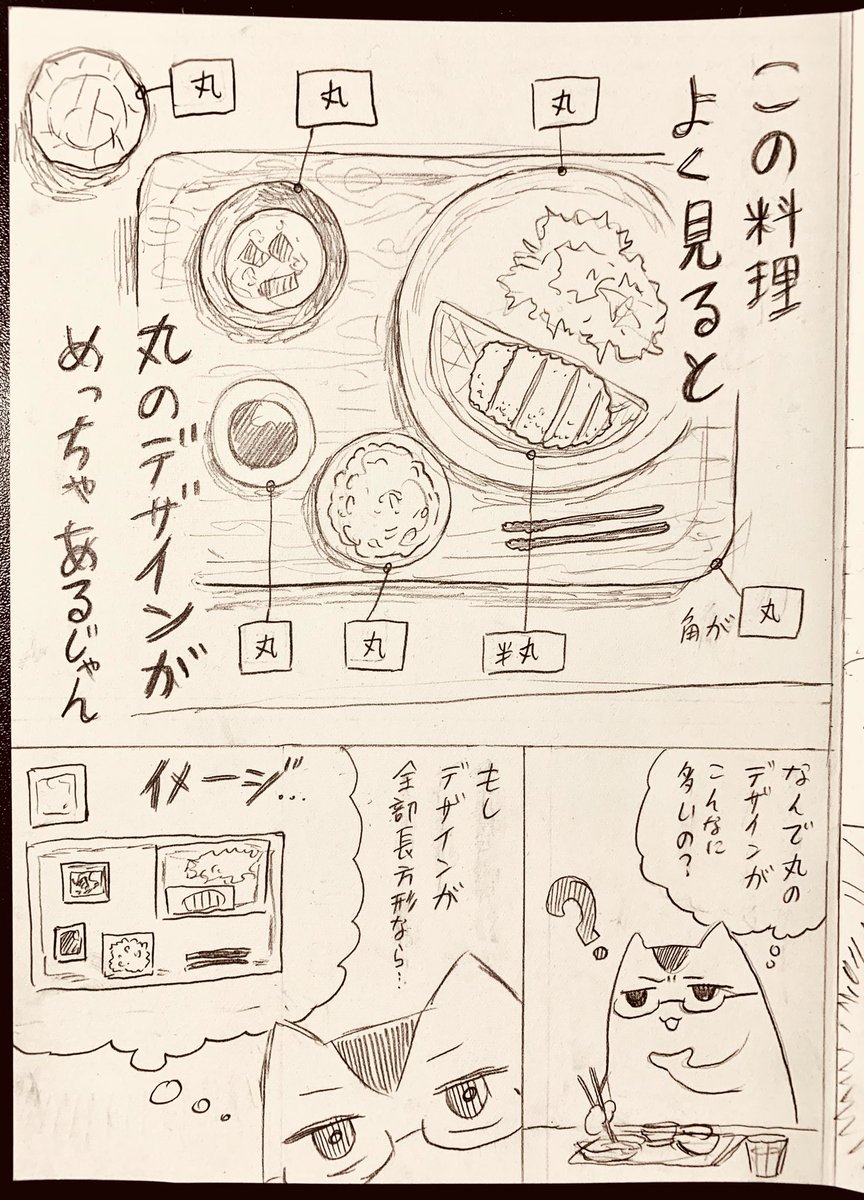 この料理
よく見ると
丸
丸
丸
丸のデザインが
めっちゃあるじゃん
角が
丸
半丸
丸
丸
なんで丸の
デザインが
こんなに
多いの?
?
もし
デザインが
全部長方形なら…
イメージ…